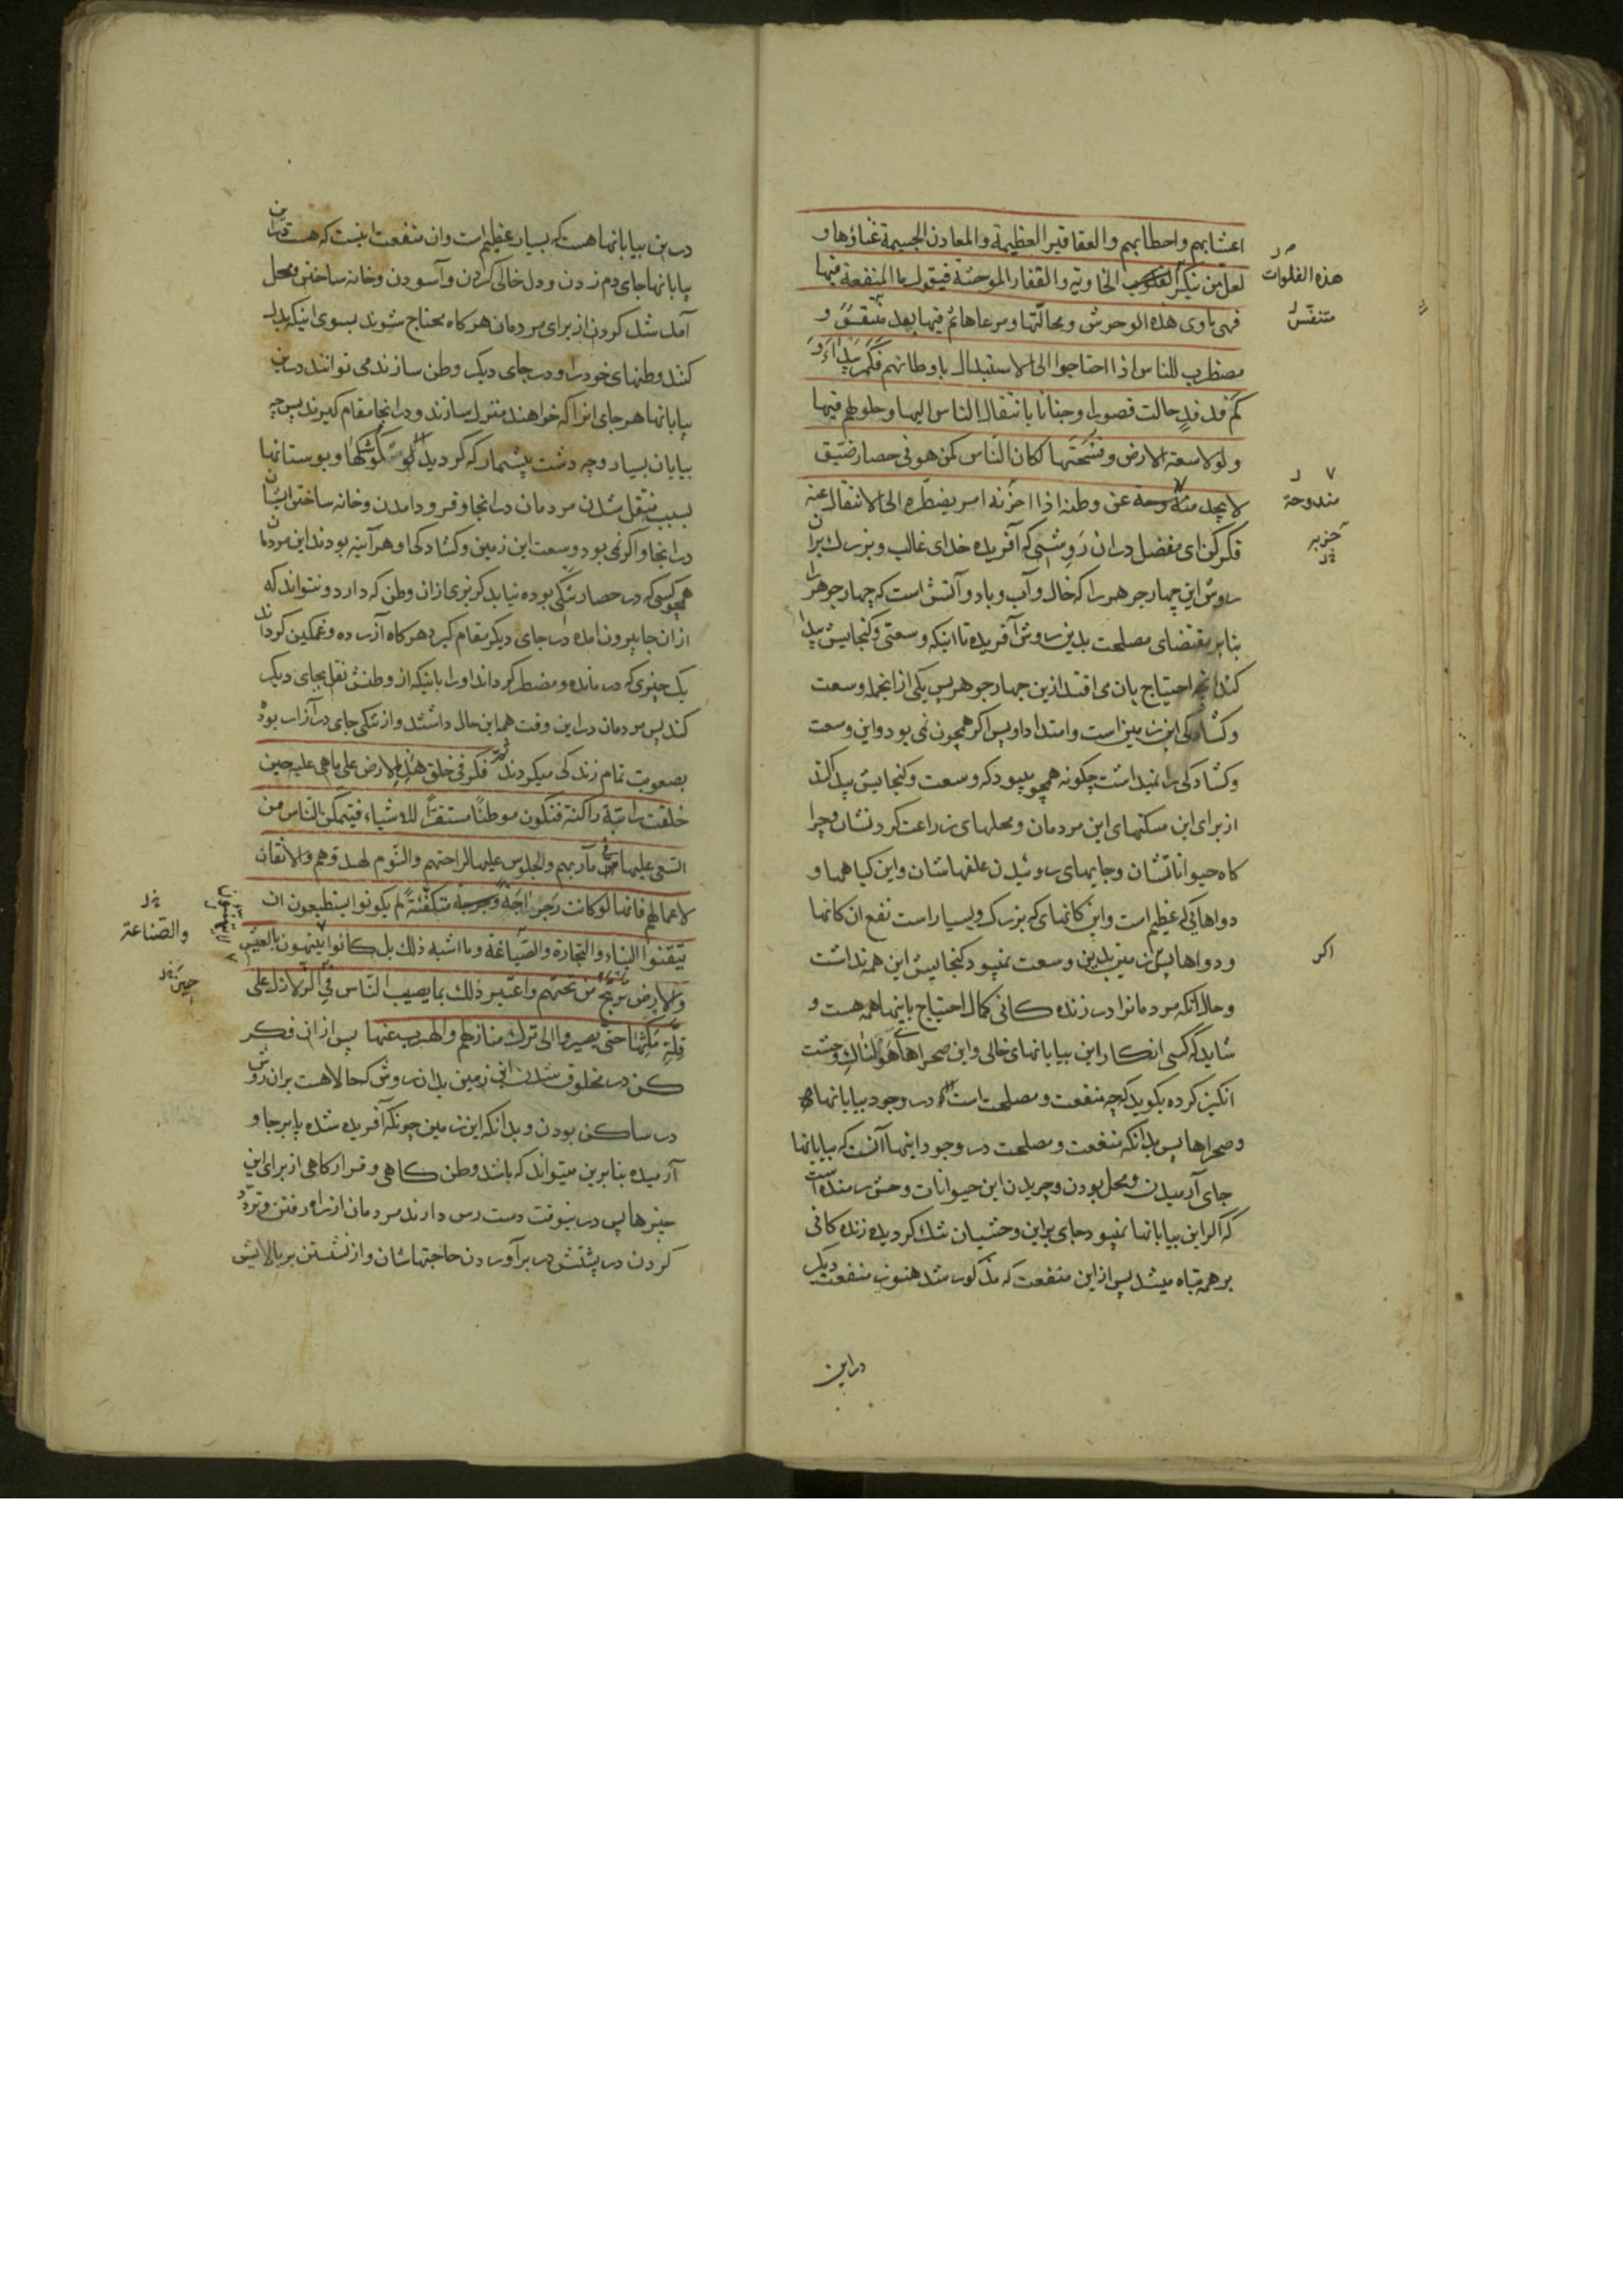 اعشابهم واحطابهم والعقاقیر العظیمة والمعادن الجسیمة غناؤها و
لعل من ینکر الفلوب الخاویة والقفار الموحشة فیقول ما المنفعة فیها
هذه الفلوات
فهی ماوی هذه الوحوش ومحالّها ومرعاها ثم فیها بعد متنفّس و
متنفّس
مضطرب للناس اذا احتاجوا الی الاستبدال باوطانهم فکم بیداء و
کم فدفد حالت قصورا وجنانا بانتقال الناس الیها وحلولهم فیها
ولولا سعة الارض وفسحتها لکان الناس کمن هو فی حصار ضیّق
لا یجد مندوحة عن وطنه اذا احزنه امر یضطره الی الانتقال عنه
مندوحة
حزبه
فکر کن ای مفضل دران روشی که آفریده خدای غالب و بزرک بران
روش این چهار جوهر را که خاک و آب و باد و آتش است که چهار جوهر را
بنابر مقتضای مصلحت بدین روش آفریده تا اینکه وسعتی و کنجایش پیدا
کند انچه احتیاج بان می افتد ازین چهار جوهر پس یکی از انجمله وسعت
وکشادکی این زمین است و امتداد او پس اکر همچون نمی بود و این وسعت
وکشادکی را نمیداشت چکونه همچو میبود که وسعت و کنجایش پیدا کند
از برای این مسکنهای این مردمان و محلهای زراعت کردنشان و چرا
کاه حیواناتشان و جایهای روئیدن علفهاشان و این کیاهها و
دواهائی که عظیم است و این کانهای که بزرک و بسیار است نفع ان کانها
و دواها پس زمین بدین وسعت نمیبود کنجایش این همه نداشت
اکر
وحال انکه مردمانرا در زنده کانی کمال احتیاج باینها همه هست و
شاید که کسی انکار این بیابانهای خالی و این صحراهای هولناک وحشت
انکیز کرده بکوید که چه منفعت و مصلحت است در وجود بیابانها
وصحراها پس بدانکه منفعت و مصلحت در وجود اینها آنست که بیابانها
جای آرمیدن و محل بودن و چریدن این حیوانات وحش رمنده است
که اکر این بیابانها نمیبود جای بر این وحشیان تنک کردیده زنده کانی
بر همه تباه میشد پس از این منفعت که مذکور شد هنوز منفعت دیکر
در این
درین بیابانها هست که بسیار عظیم است وان منفعت اینست که هست درین
بیابانها جای دم زدن و دل خالی کردن و آسودن و خانه ساختن و محل
آمد شد کردن از برای مردمان هرکاه محتاج شوند بسوی اینکه بدل
کنند وطنهای خود را و در جای دیکر وطن سازند می توانند درین
بیابانها هر جای انرا که خواهند منزل سازند و در انجا مقام کیرند پس چه
بیابان بسیار و چه دشت بیشمار که کردید کوشکها و بوستانها
بسبب منتقل شدن مردمان در انجا و فرود امدن و خانه ساختن ایشان
در انجا و اکر نمی بود وسعت این زمین و کشادکی او هر آینه بودند این مردمان
همچو کسی که در حصار تنکی بوده نیابد کریزی از ان وطن که دارد و نتواند که
از ان جا بیرون امده در جای دیکر مقام کیرد هرکاه آزرده و غمکین کرداند
یک چیزی که درمانده و مضطر کرداند او را باینکه از وطنش نقل بجای دیکر
کند پس مردمان در این وقت همین حال داشتند و از تنکی جای در آزار بوده
بصعوبت تمام زندکی میکردند ثم فکر فی خلق هذه الارض علی ما هی علیه حین
خلقت راتبة راکنة فتکون موطنا مستقرّا للاشیاء فیتمکن الناس من
السعی علیها فی مآربهم والجلوس علیها لراحتهم والنوم لهدوّهم والاتقان
لاعمالهم فانها لو کانت رجراجة متکفّئة لم یکونوا یستطیعون ان
یتقنوا البناء والتجارة والصیاغة وما اشبه ذلک بل کانوا لا یتهنون بالعیش
والصناعة
والارض ترتج من تحتهم واعتبر ذلک بما یصیب الناس فی الزلازل علی
حین
قلّة مکثها حتی یصیروا الی ترک منازلهم والهرب عنها پس از ان فکر
کن در مخلوق شدن این زمین بدان روش که حالا هست بران روش
در ساکن بودن و بدانکه این زمین چونکه آفریده شده پابرجا و
آرمیده بنابرین میتواند که باشد وطن کاهی و قرار کاهی از برای این
چیزها پس درینوقت دست رس دارند مردمان از راه رفتن و تردد
کردن در پشتش در برآوردن حاجتهاشان و از نشستن بر بالایش